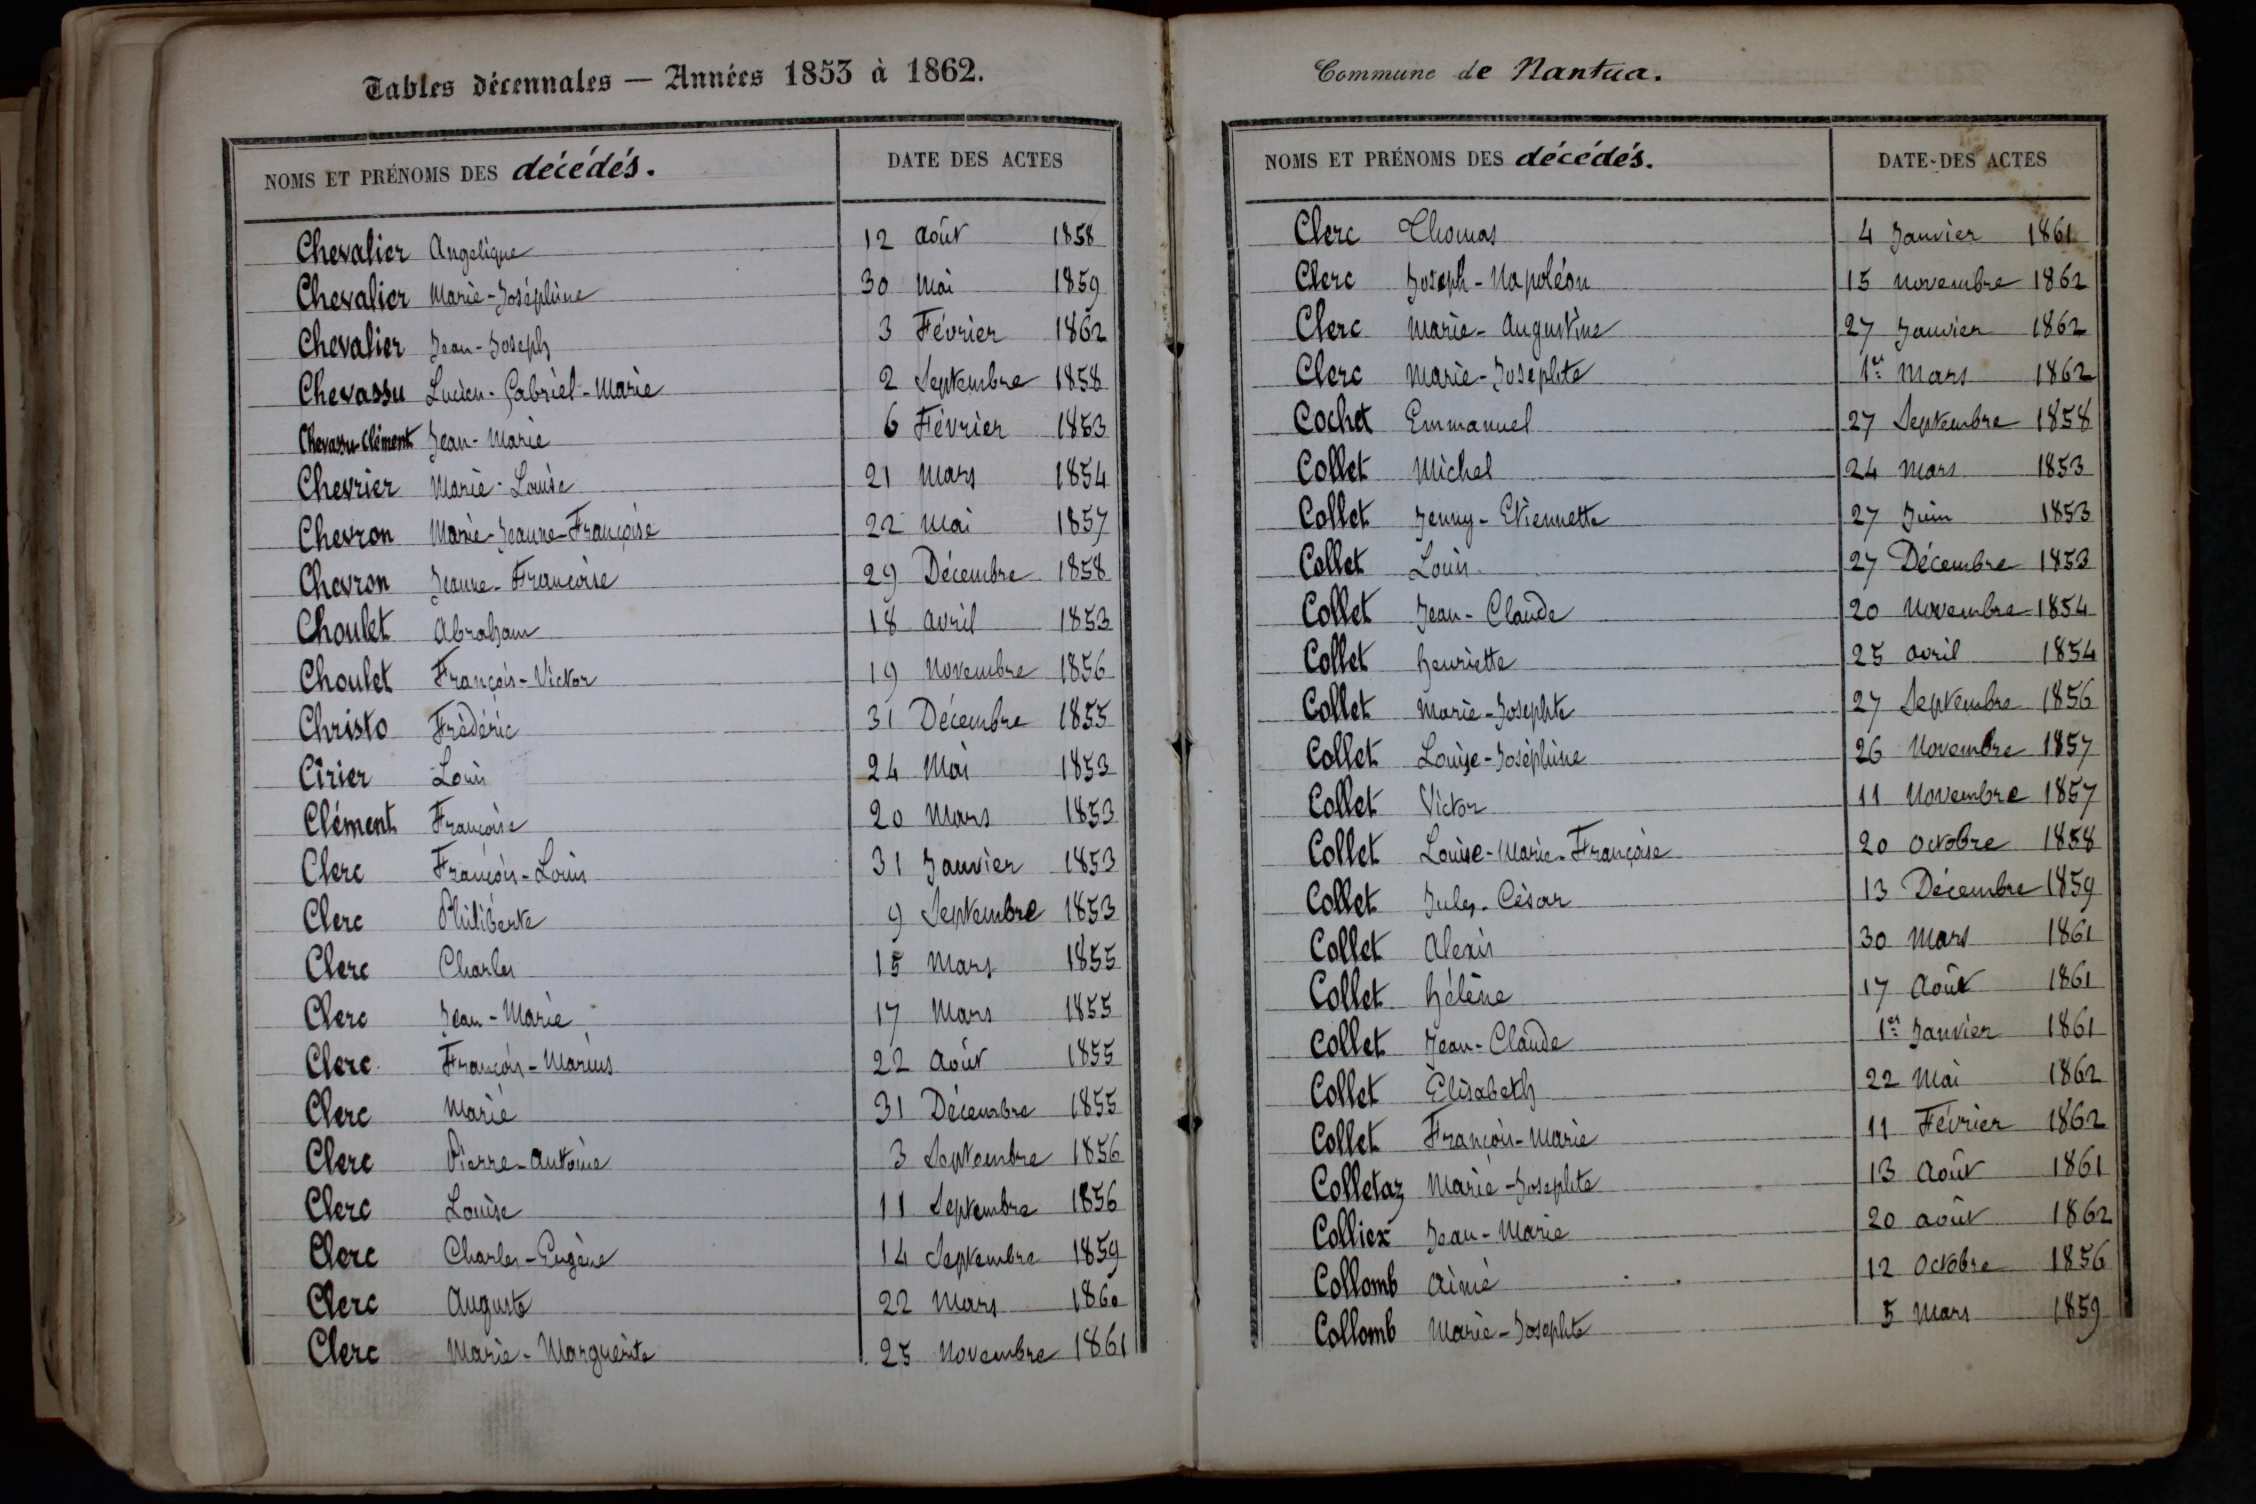 Tables décennales — Années 1853 à 1862.
NOMS ET PRÉNOMS DES décédés. DATE DES ACTES
Chevalier Angelique 12 août 1858
Chevalier Marie-Joséphine 30 Mai 1859
Chevalier Jean-Joseph 3 Février 1862
Chevassu Lucien-Gabriel-Marie 2 Septembre 1858
Chevassu-Clément Jean-Marie 6 Février 1853
Chevrier Marie-Louise 21 Mars 1854
Chevron Marie-Jeanne-Françoise 22 Mai 1857
Chevron Jeanne-Françoise 29 Décembre 1858
Choulet Abraham 18 avril 1853
Choulet François-Victor 19 Novembre 1856
Christo Frédéric 31 Décembre 1855
Cirier Louis 24 Mai 1853
Clément Françoise 20 Mars 1853
Clerc François-Louis 31 Janvier 1853
Clerc Philiberte 9 Septembre 1853
Clerc Charles 15 Mars 1855
Clerc Jean-Marie 17 Mars 1855
Clerc François-Marius 22 Août 1855
Clerc Marie 31 Décembre 1855
Clerc Pierre-Antoine 3 Septembre 1856
Clerc Louise 11 Septembre 1856
Clerc Charles-Eugène 14 Septembre 1859
Clerc Auguste 22 Mars 1860
Clerc Marie-Marguerite 25 Novembre 1861
Commune de Nantua.
NOMS ET PRÉNOMS DES décédés. DATE DES ACTES
Clerc Thomas 4 Janvier 1861
Clerc Joseph-Napoléon 15 Novembre 1862
Clerc Marie-Augustine 27 Janvier 1862
Clerc Marie-Josephte 1er Mars 1862
Cochet Emmanuel 27 Septembre 1858
Collet Michel 24 Mars 1853
Collet Jenny-Etiennette 27 Juin 1853
Collet Louis 27 Décembre 1853
Collet Jean-Claude 20 Novembre 1854
Collet henriette 25 avril 1854
Collet Marie-Josephte 27 Septembre 1856
Collet Louise-Joséphine 26 Novembre 1857
Collet Victor 11 Novembre 1857
Collet Louise-Marie-Françoise 20 Octobre 1858
Collet Jules-César 13 Décembre 1859
Collet Alexis 30 Mars 1861
Collet hélène 17 Août 1861
Collet Jean-Claude 1er Janvier 1861
Collet Élisabeth 22 Mai 1862
Collet François-Marie 11 Février 1862
Colletaz Marie-Josephte 13 Août 1861
Colliex Jean-Marie 20 août 1862
Collomb Aimé 12 Octobre 1856
Collomb Marie-Josephte 5 Mars 1859